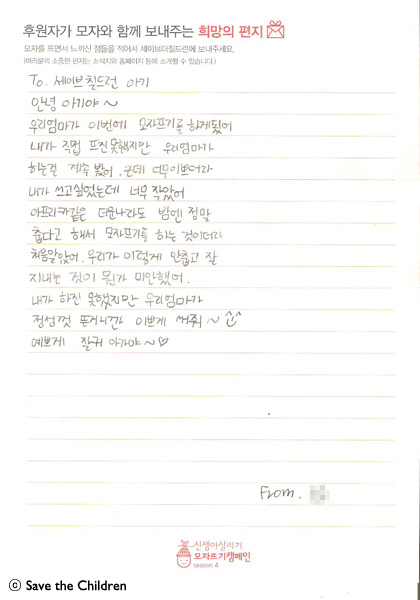 후원자가 모자와 함께 보내주는 희망의 편지
모자를 뜨면서 느끼신 점들을 적어서 세이브더칠드런에 보내주세요.
(여러분의 소중한 편지는 소식지와 홈페이지 등에 소개될 수 있습니다.)
To. 세이브칠드런 아기
안녕 아기야~
우리엄마가 이번에 모자뜨기를 하게됬어
내가 직접 뜨진 못했지만 우리엄마가
하는걸 계속 봤어. 근데 너무이쁘더라
내가 쓰고싶었는데 너무 작았어
아프리카같은 더운나라도 밤엔 정말
춥다고 해서 모자뜨기를 하는 것이더라
처음알았어. 우리가 이렇게 안춥고 잘
지내는 것이 뭔가 미안했어.
내가 하진 못했지만 우리엄마가
정성껏 뜬거니깐 이쁘게 써줘~ ^^
예쁘게 잘커 아가야~♡
From.
신생아살리기
모자뜨기캠페인
season 4
ⓒ Save the Children